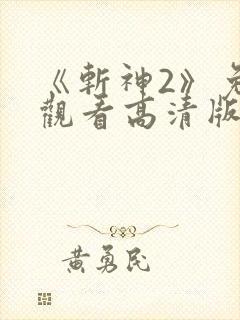 《斬神2》免
觀看高清版
黃勇民